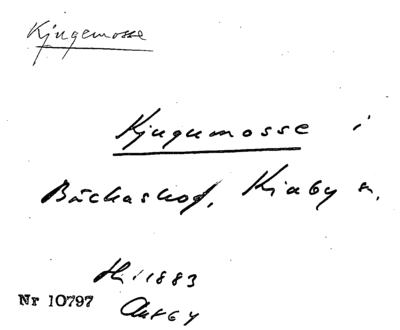 Kjugemosse
Kjugumosse i
Bäckaskog, Kiaby sn.
1883
Nr 10797